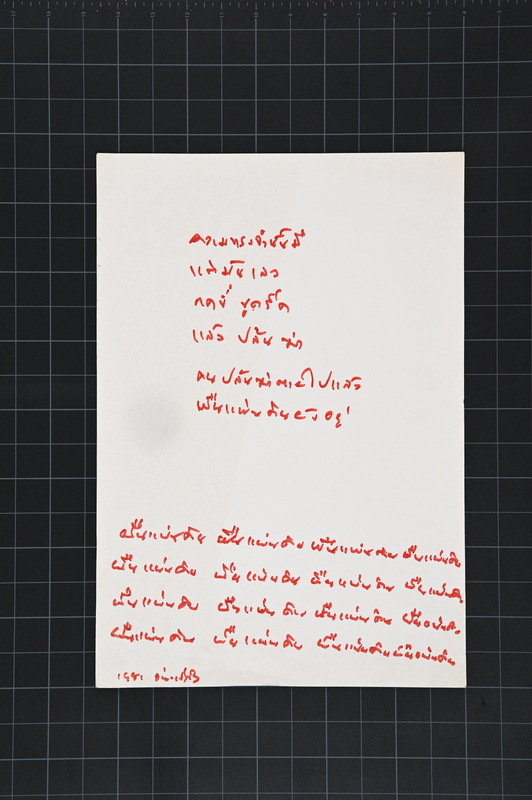 ความทรงจำนั้นมี
แต่มันเลว
กดขี่ ขูดรีด
แล้ว ปล้น ฆ่า
คน ปล้นฆ่าตายไปแล้ว
ผืนแผ่นดินยังอยู่
ผืนแผ่นดิน ผืนแผ่นดิน ผืนแผ่นดิน ผืนแผ่นดิน
ผืนแผ่นดิน ผืนแผ่นดิน ผืนแผ่นดิน ผืนแผ่นดิน
ผืนแผ่นดิน ผืนแผ่นดิน ผืนแผ่นดิน ผืนแผ่นดิน
ผืนแผ่นดิน ผืนแผ่นดิน ผืนแผ่นดิน ผืนแผ่นดิน